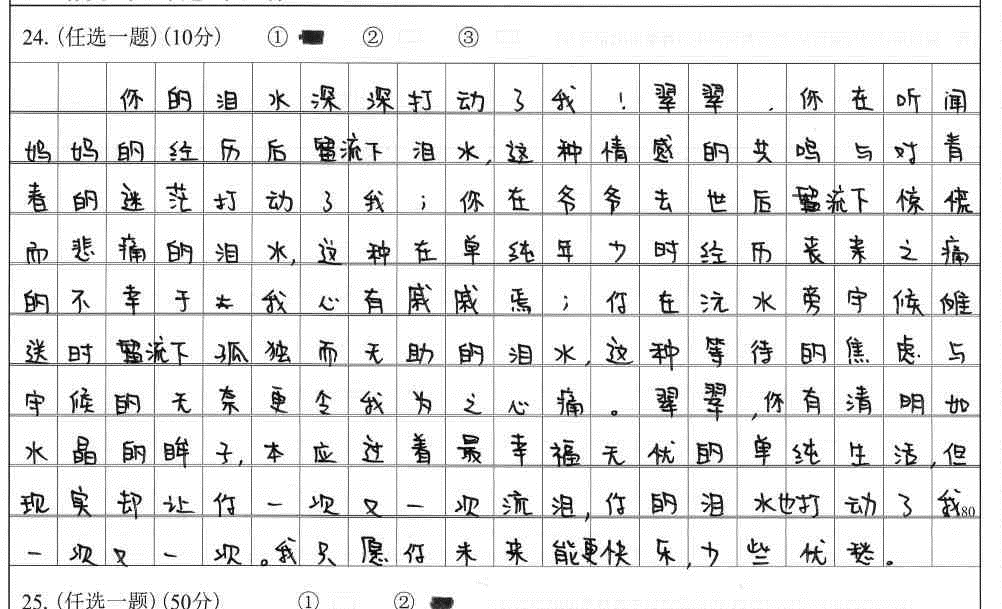 24. (任选一题)(10分) ① ② ③
你的泪水深深打动了我！翠翠，你在听闻
妈妈的经历后流下泪水，这种情感的共鸣与对青
春的迷茫打动了我；你在爷爷去世后流下惊慌
而悲痛的泪水，这种在单纯年少时经历丧亲之痛
的不幸于我心有戚戚焉；你在沅水旁守候傩
送时流下孤独而无助的泪水，这种等待的焦虑与
守候的无奈更令我为之心痛。翠翠，你有清明如
水晶的眸子，本应过着最幸福无忧的单纯生活，但
现实却让你一次又一次流泪，你的泪水也打动了我80
一次又一次。我只愿你未来能更快乐，少些忧愁。
25. (任选一题)(50分) ① ②